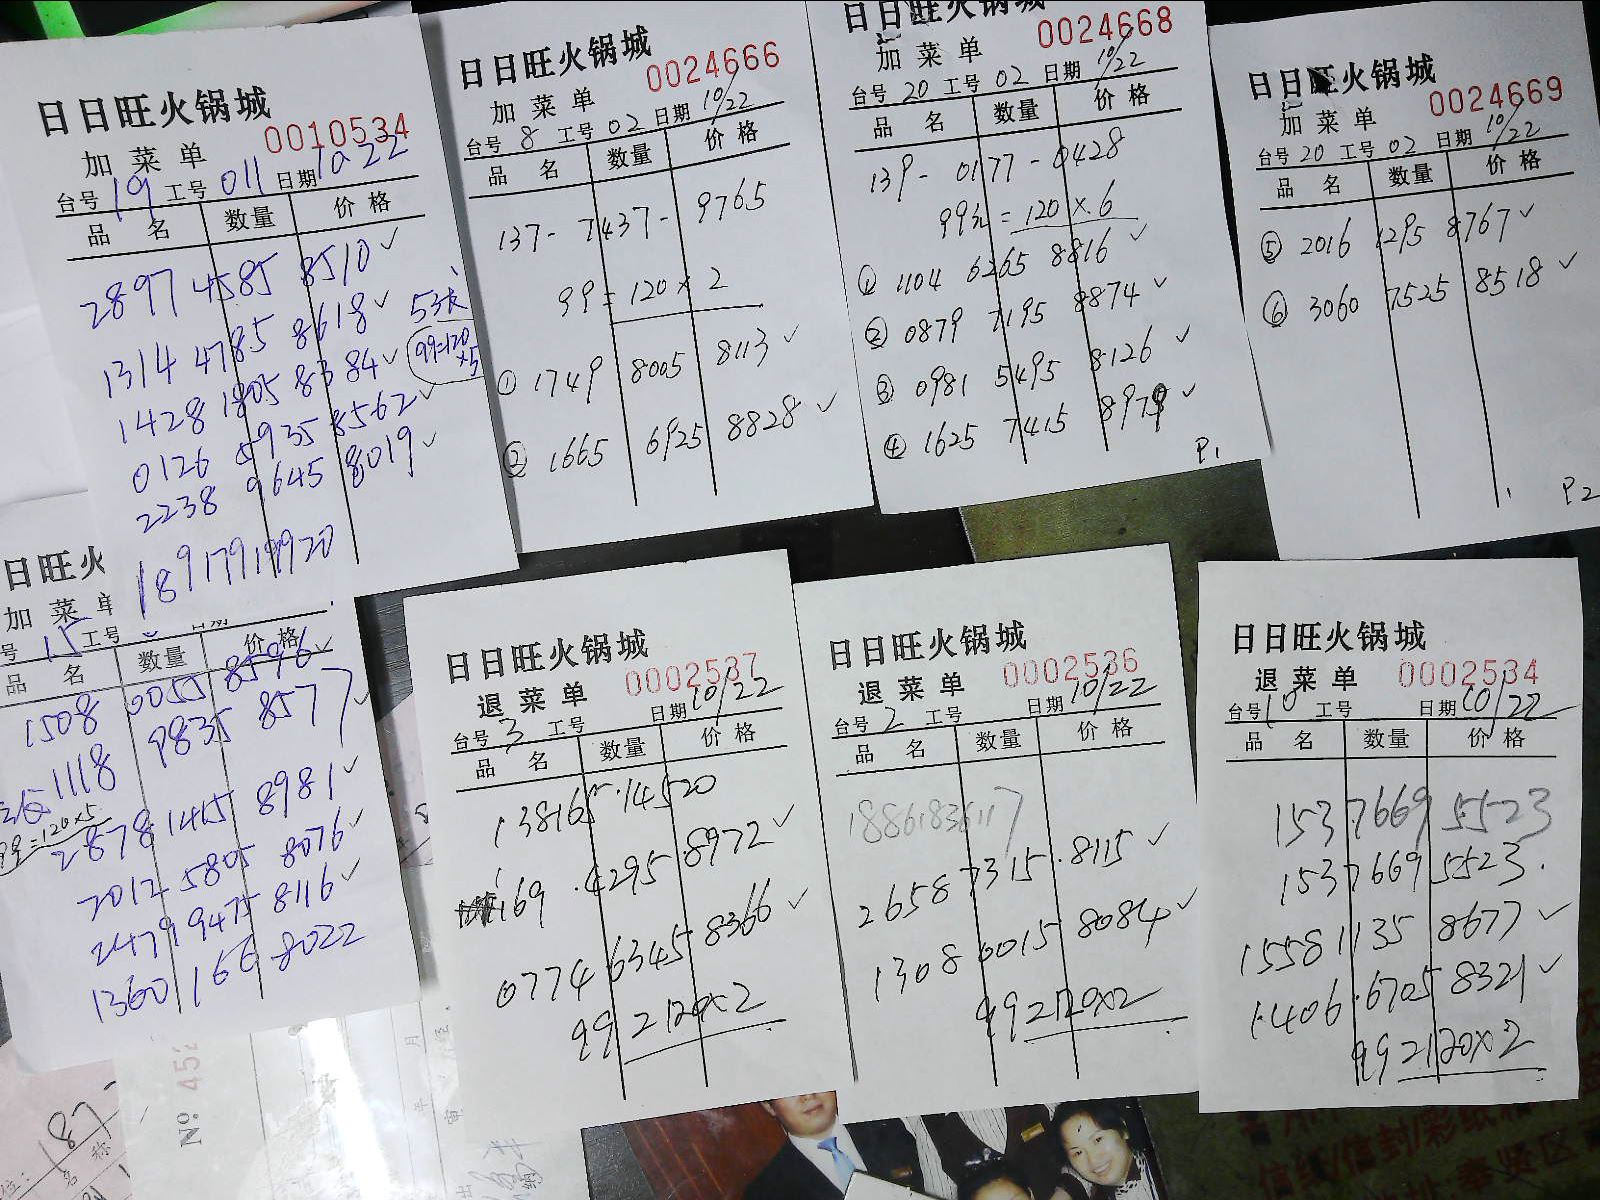 日日旺火锅城
0010534
加菜单
台号 19 工号 011 日期 10 22
品 名 数量 价格
2897 4585 8510 ✓
1314 4785 8618 ✓
1428 1805 8384 ✓
0126 5935 8562 ✓
2238 9645 8019 ✓
99=120
×5
18917919920
日日旺火锅城
0024666
加菜单
台号 8 工号 02 日期 10/22
品 名 数量 价格
137-7437-9765
99=120×2
① 1749 8005 8113 ✓
② 1665 6925 8828 ✓
日日旺火锅城
0024668
加菜单
台号 20 工号 02 日期 10/22
品 名 数量 价格
139-0177-0428
99元=120×6
① 1104 6265 8816 ✓
② 0879 7195 8874 ✓
③ 0981 5495 8126 ✓
④ 1625 7415 8979 ✓
P1
日日旺火锅城
0024669
加菜单
台号 20 工号 02 日期 10/22
品 名 数量 价格
⑤ 2016 1295 8767 ✓
⑥ 3060 7525 8518 ✓
P2
日旺火
加菜单
号 15 工号
品 名 数量 价格
1508 0055 8596 ✓
1118 9835 8577 ✓
99=120×5
2878 1415 8981 ✓
2012 5805 8076 ✓
2479 9475 8116 ✓
1360 166 8022
日日旺火锅城
0002537
退菜单
台号 3 工号 日期 10/22
品 名 数量 价格
13816514520
169 4295 8972 ✓
0774 6345 8366 ✓
99=120×2
日日旺火锅城
0002536
退菜单
台号 2 工号 日期 10/22
品 名 数量 价格
18861836117
2658 7315 8115 ✓
1308 0015 8084 ✓
99=120×2
日日旺火锅城
0002534
退菜单
台号 10 工号 日期 10/22
品 名 数量 价格
153 7669 5523
153 7669 5523
1558 1135 8677 ✓
1406 6705 8321 ✓
99=120×2
Nº 452
187